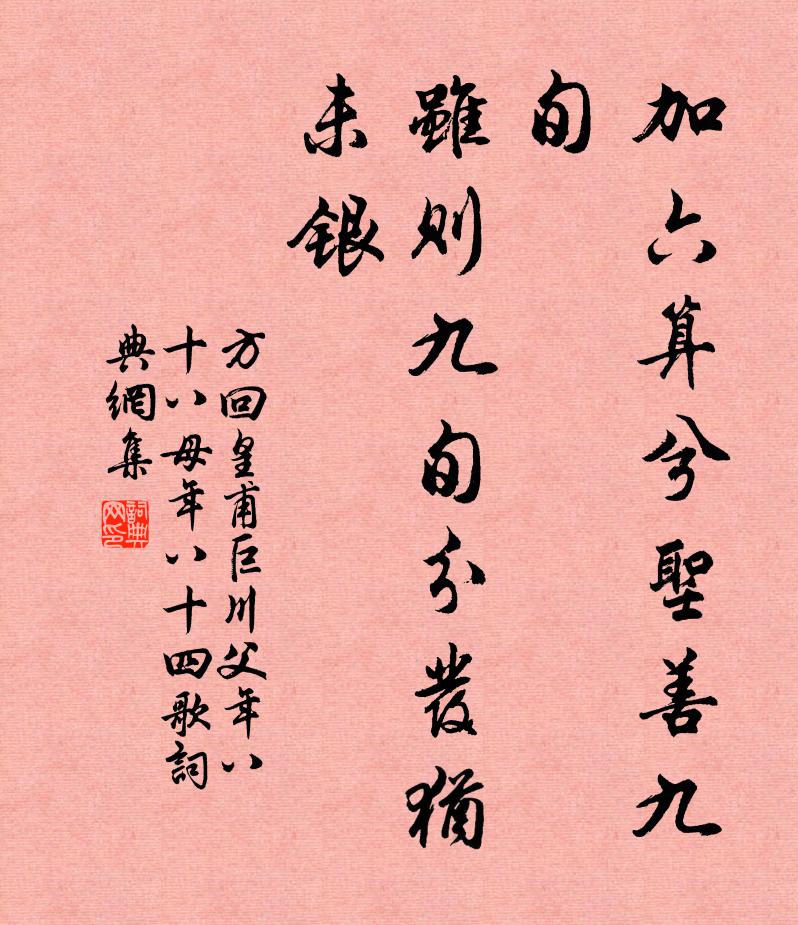 加六算兮聖善九
旬
雖則九旬兮發猶
未銀
方回皇甫巨川父年八
十八母年八十四歌詞
典網集
詞典
网印